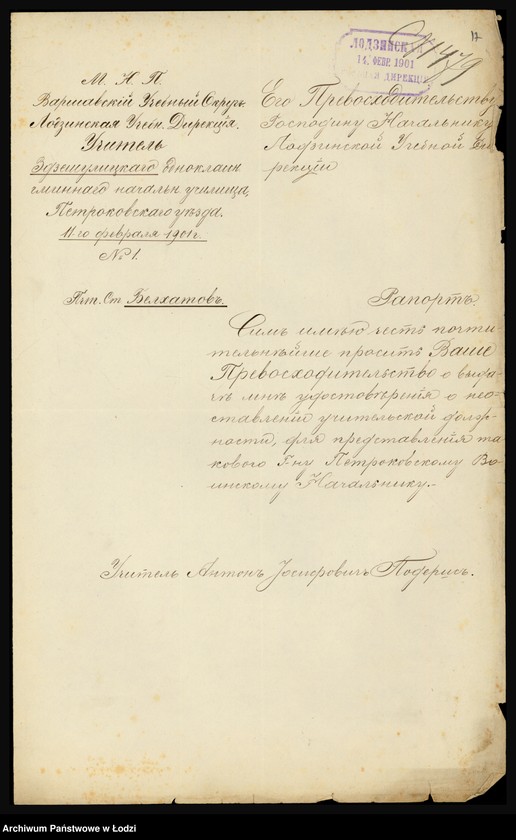 17
№ 1479
ЛОДЗИНСКАЯ
14. ФЕВР. 1901
ДИРЕКЦІЯ
М. Н. П.
Варшавскій Учебный Округъ.
Лодзинская Учебн. Дирекція.
Учитель
одноклаcн
гминнаго начальн училища,
Петроковскаго уѣзда.
11-го февраля 1901 г.
№ 1.
Его Превосходительству
Господину Начальнику
Лодзинской Учебной Ди
рекціи
Пчт. Ст. Белхатовъ.
Рапортъ.
Симъ имѣю честь почти
тельнѣйше просить Ваше
Превосходительство о выда-
чѣ мнѣ удостовѣренія о нео-
ставленіи учительской долж-
ности, для представленія та
кового Г-ну Петроковскому Во-
инскому Начальнику.-
Учитель Антонъ Іосифовичъ
Archiwum Państwowe w Łodzi